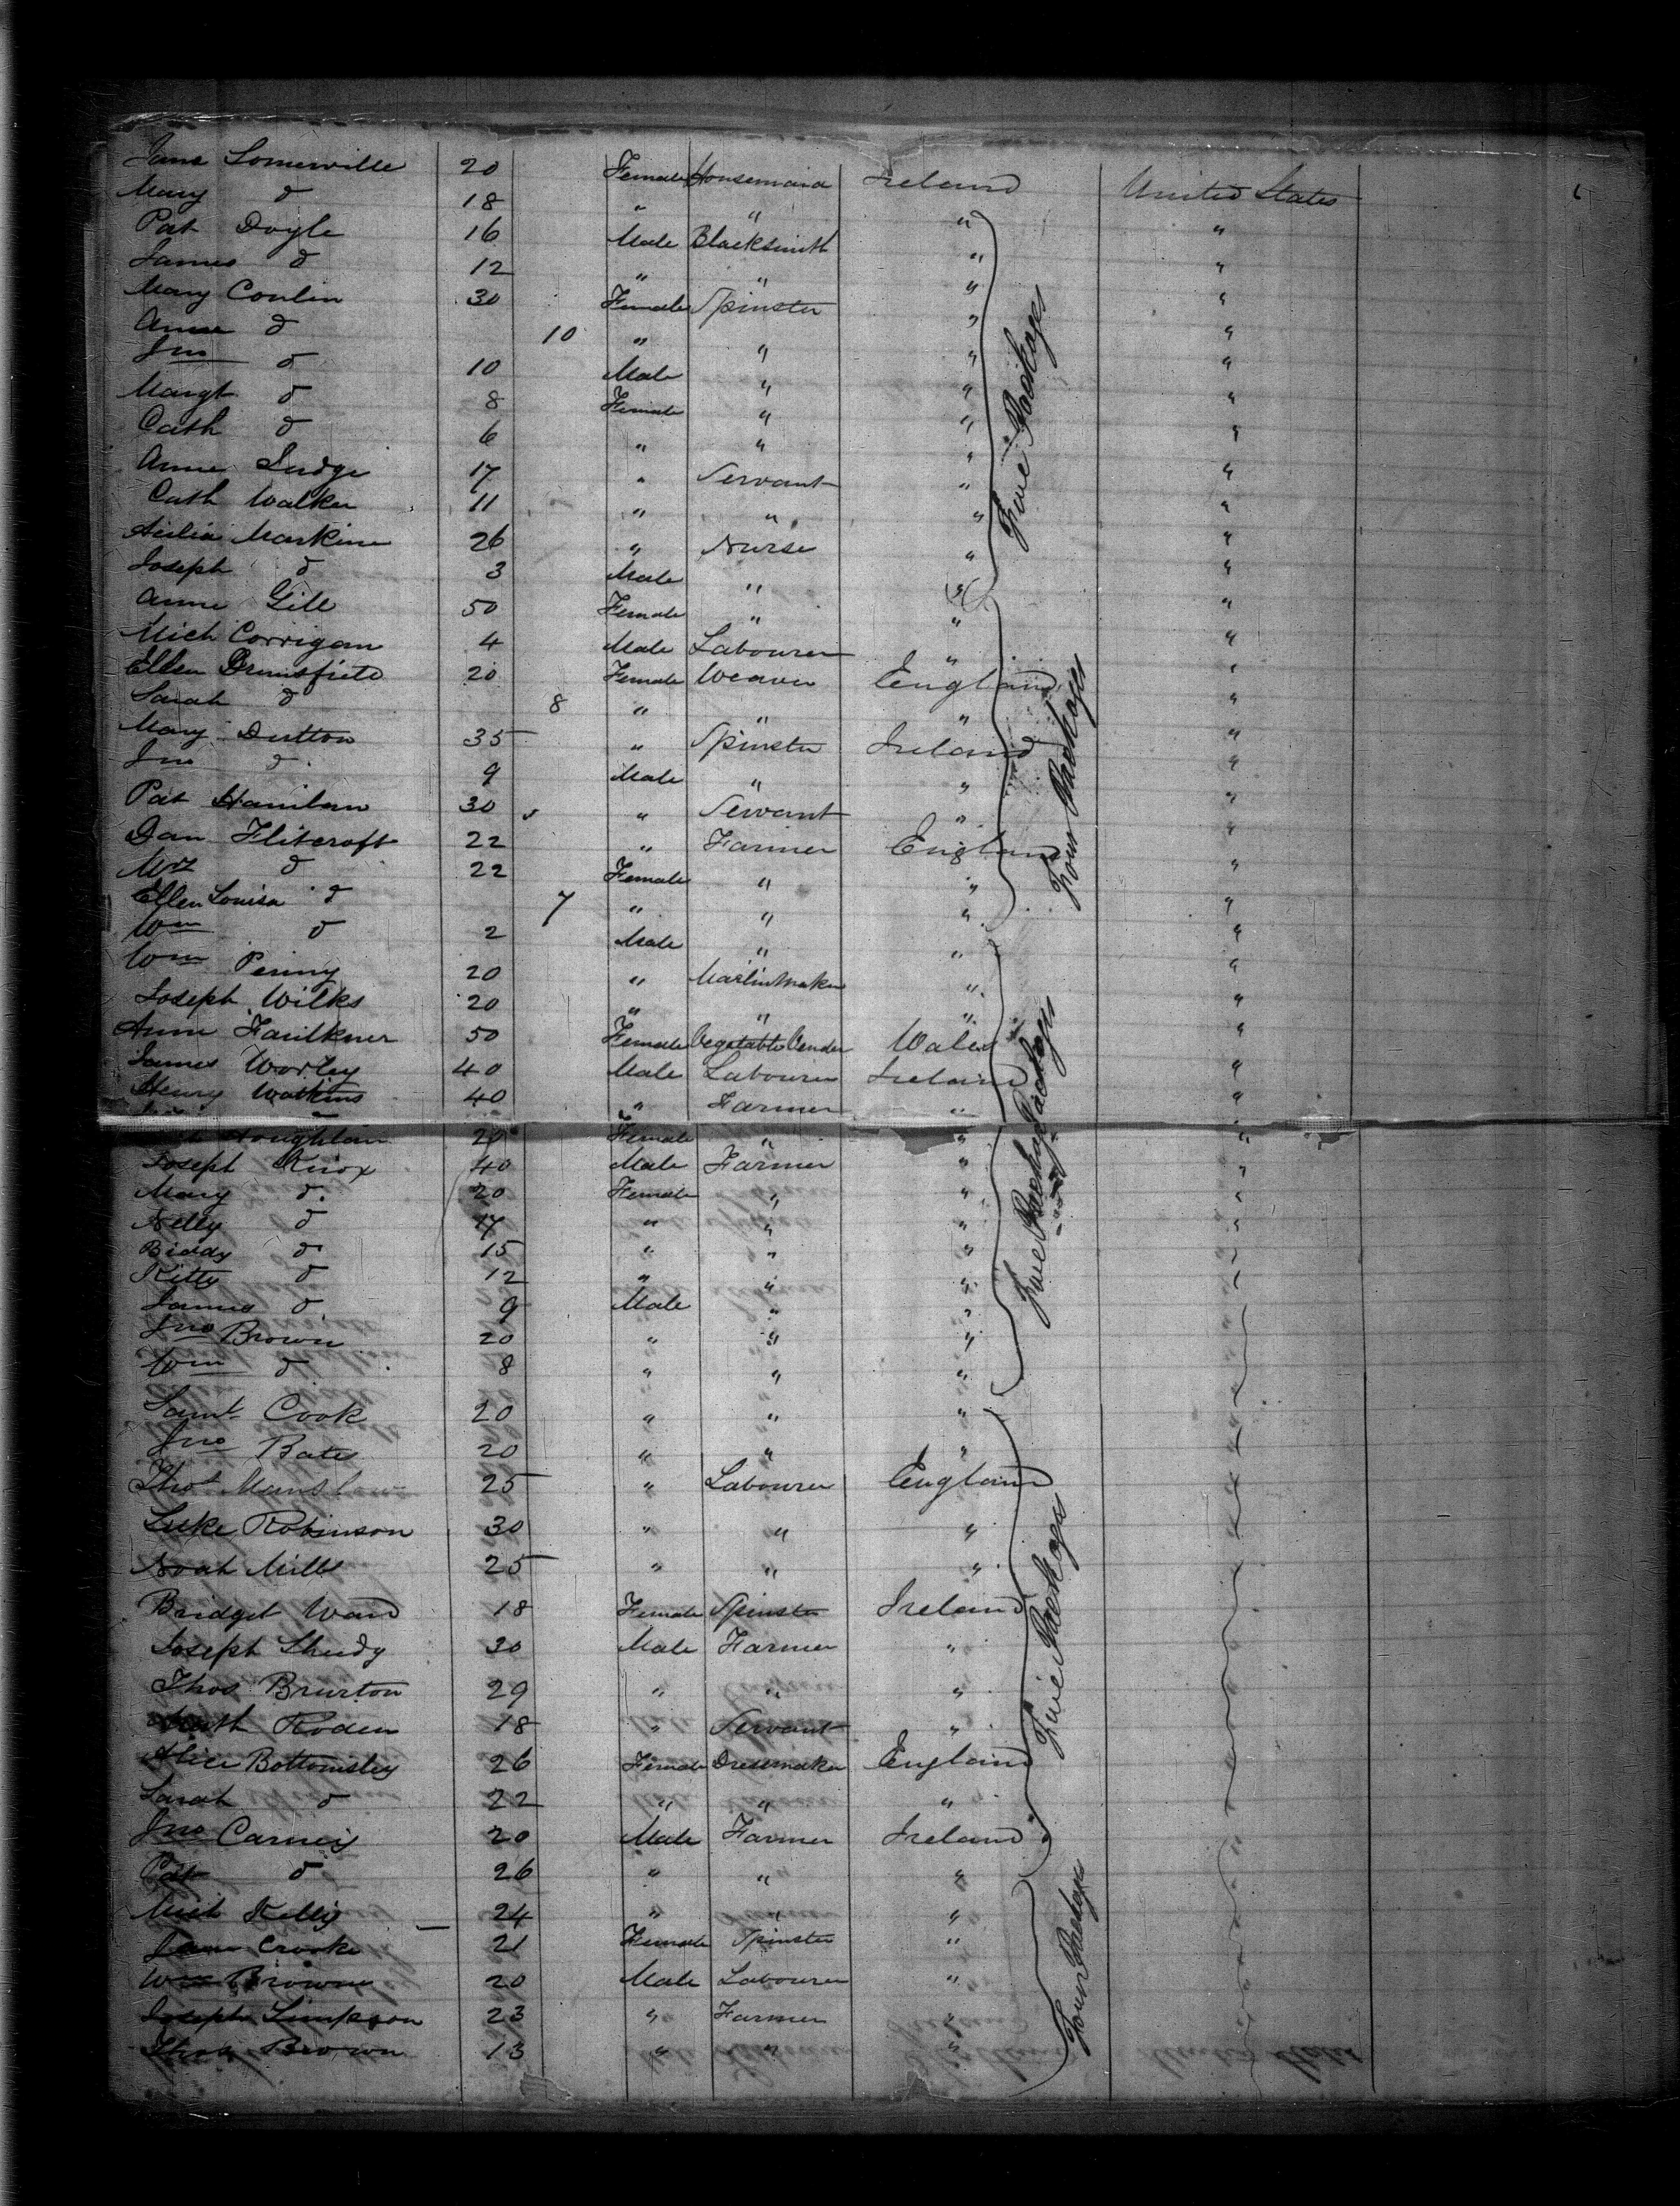 Jane Somerville 20 Female Housemaid Ireland United States
Mary d 18 " " " "
Pat Doyle 16 Male Blacksmith " "
James d 12 " " " "
Mary Conlin 30 Female Spinster " "
Anne d 10 " " " "
Jno d 10 Male " " "
Margt d 8 Female " " "
Cath d 6 " " " "
Anne Judge 17 " Servant " "
Cath Walker 11 " " " "
26 " Nurse " "
Joseph d 3 Male " " "
Anne Gill 50 Female " " "
Mich Corrigan 4 Male Labourer " "
Ellen 20 Female Weaver England "
Sarah d 8 " " " "
Mary Dutton 35 " Spinster Ireland "
Jno d 9 Male " " "
Pat Hanilan 30 " Servant " "
Dan Flitcroft 22 " Farmer England "
Mrs d 22 Female " " "
Ellen Louisa d 7 " " " "
Wm d 2 Male " " "
Wm Penny 20 " " "
Joseph Wilks 20 " " " "
Anne Faulkner 50 Female Vegetable Vender Wales "
James Worley 40 Male Labourer Ireland "
Henry Watkins 40 " Farmer " "
Houghlan 20 Female " " "
Joseph Knox 40 Male Farmer " "
Mary d. 20 Female " " "
Nelly d 17 " " " "
Biddy d 15 " " " "
Kitty d 12 " " " "
James d 9 Male " " "
Jno Brown 20 " " "
Wm d 8 " " "
Saml Cook 20 " " "
Jno Bates 20 " " "
Thos 25 " Labourer England
Luke Robinson 30 " " "
Noah Mills 25 " " "
Bridget Ward 18 Female Spinster Ireland
Joseph 30 Male Farmer "
Thos Brurton 29 " " "
Roden 18 " Servant "
Alice Bottomsley 26 Female Dressmaker England
Sarah d 22 " " "
Jno Carney 20 Male Farmer Ireland
Pat d 26 " " "
Mich Kelly 24 " " "
Jane Crooke 21 Female Spinster "
Wm Brown 20 Male Labourer "
Joseph Simpson 23 " Farmer "
Thos Brown 13 " " "
Five Packages
Four Packages
Five Packages
Five Packages
Four Packages